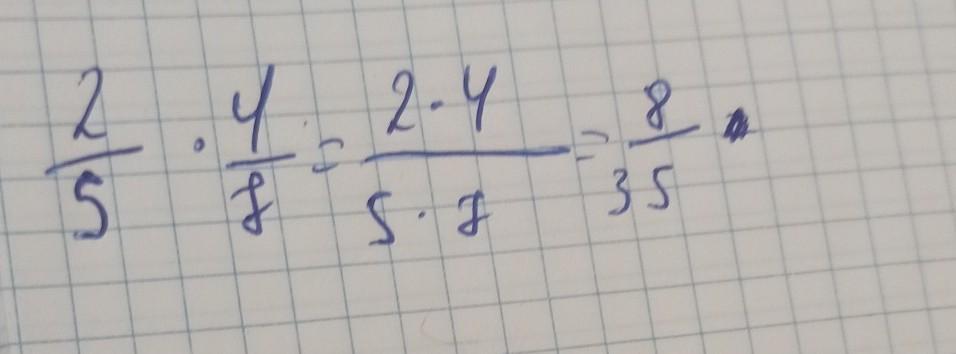 2/5 · 4/7 = 2·4/5·7 = 8/35